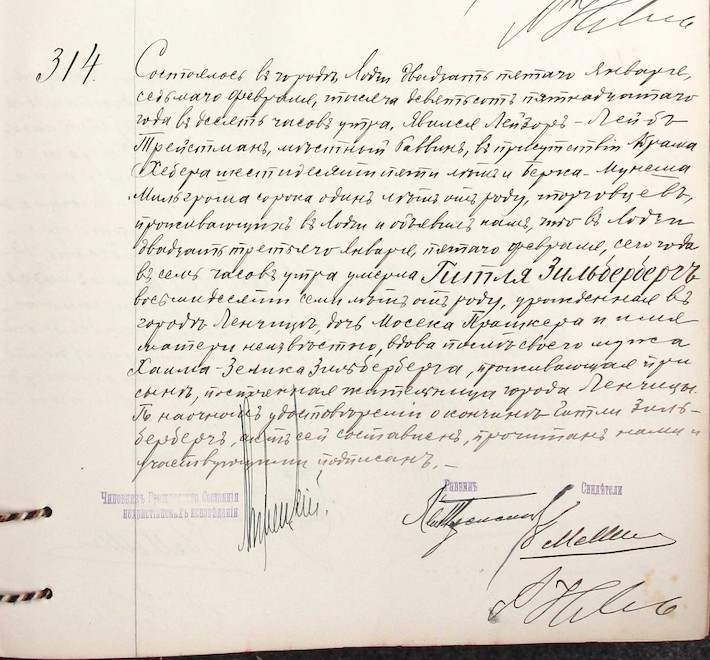 314.
Состоялось въ городѣ Лодзи двадцать пятаго Января,
седьмаго Февраля, тысяча девятьсотъ пятнадцатаго
года въ десять часовъ утра, явился Лейзоръ-Лейбъ
Трейстманъ, мѣстный Раввинъ, въ присутствіи Крама
Хебера шестидесяти пяти лѣтъ и Берка-Мунема
Мильгрома сорока одинъ лѣтъ отъ роду, торговцевъ,
проживающихъ въ Лодзи и объявилъ намъ, что въ Лодзи
двадцать третьяго Января, пятаго Февраля, сего года
въ семь часовъ утра умерла Гитля Зильбербергъ
восьмидесяти семи лѣтъ отъ роду, урожденная въ
городѣ Ленчицѣ, дочь Мосека Прашкера и имя
матери неизвѣстно, вдова послѣ своего мужа
Хаима-Зелика Зильберберга, проживающая при
сынѣ, постоянная жительница города Ленчицы.
По наочномъ удостовѣреніи о кончинѣ Гитли Зиль-
бербергъ, актъ сей составленъ, прочитанъ нами и
участвующими подписанъ.-
Чиновникъ Гражданскаго Состоянія
нехристіанскихъ исповѣданій
Раввинъ
Свидѣтели